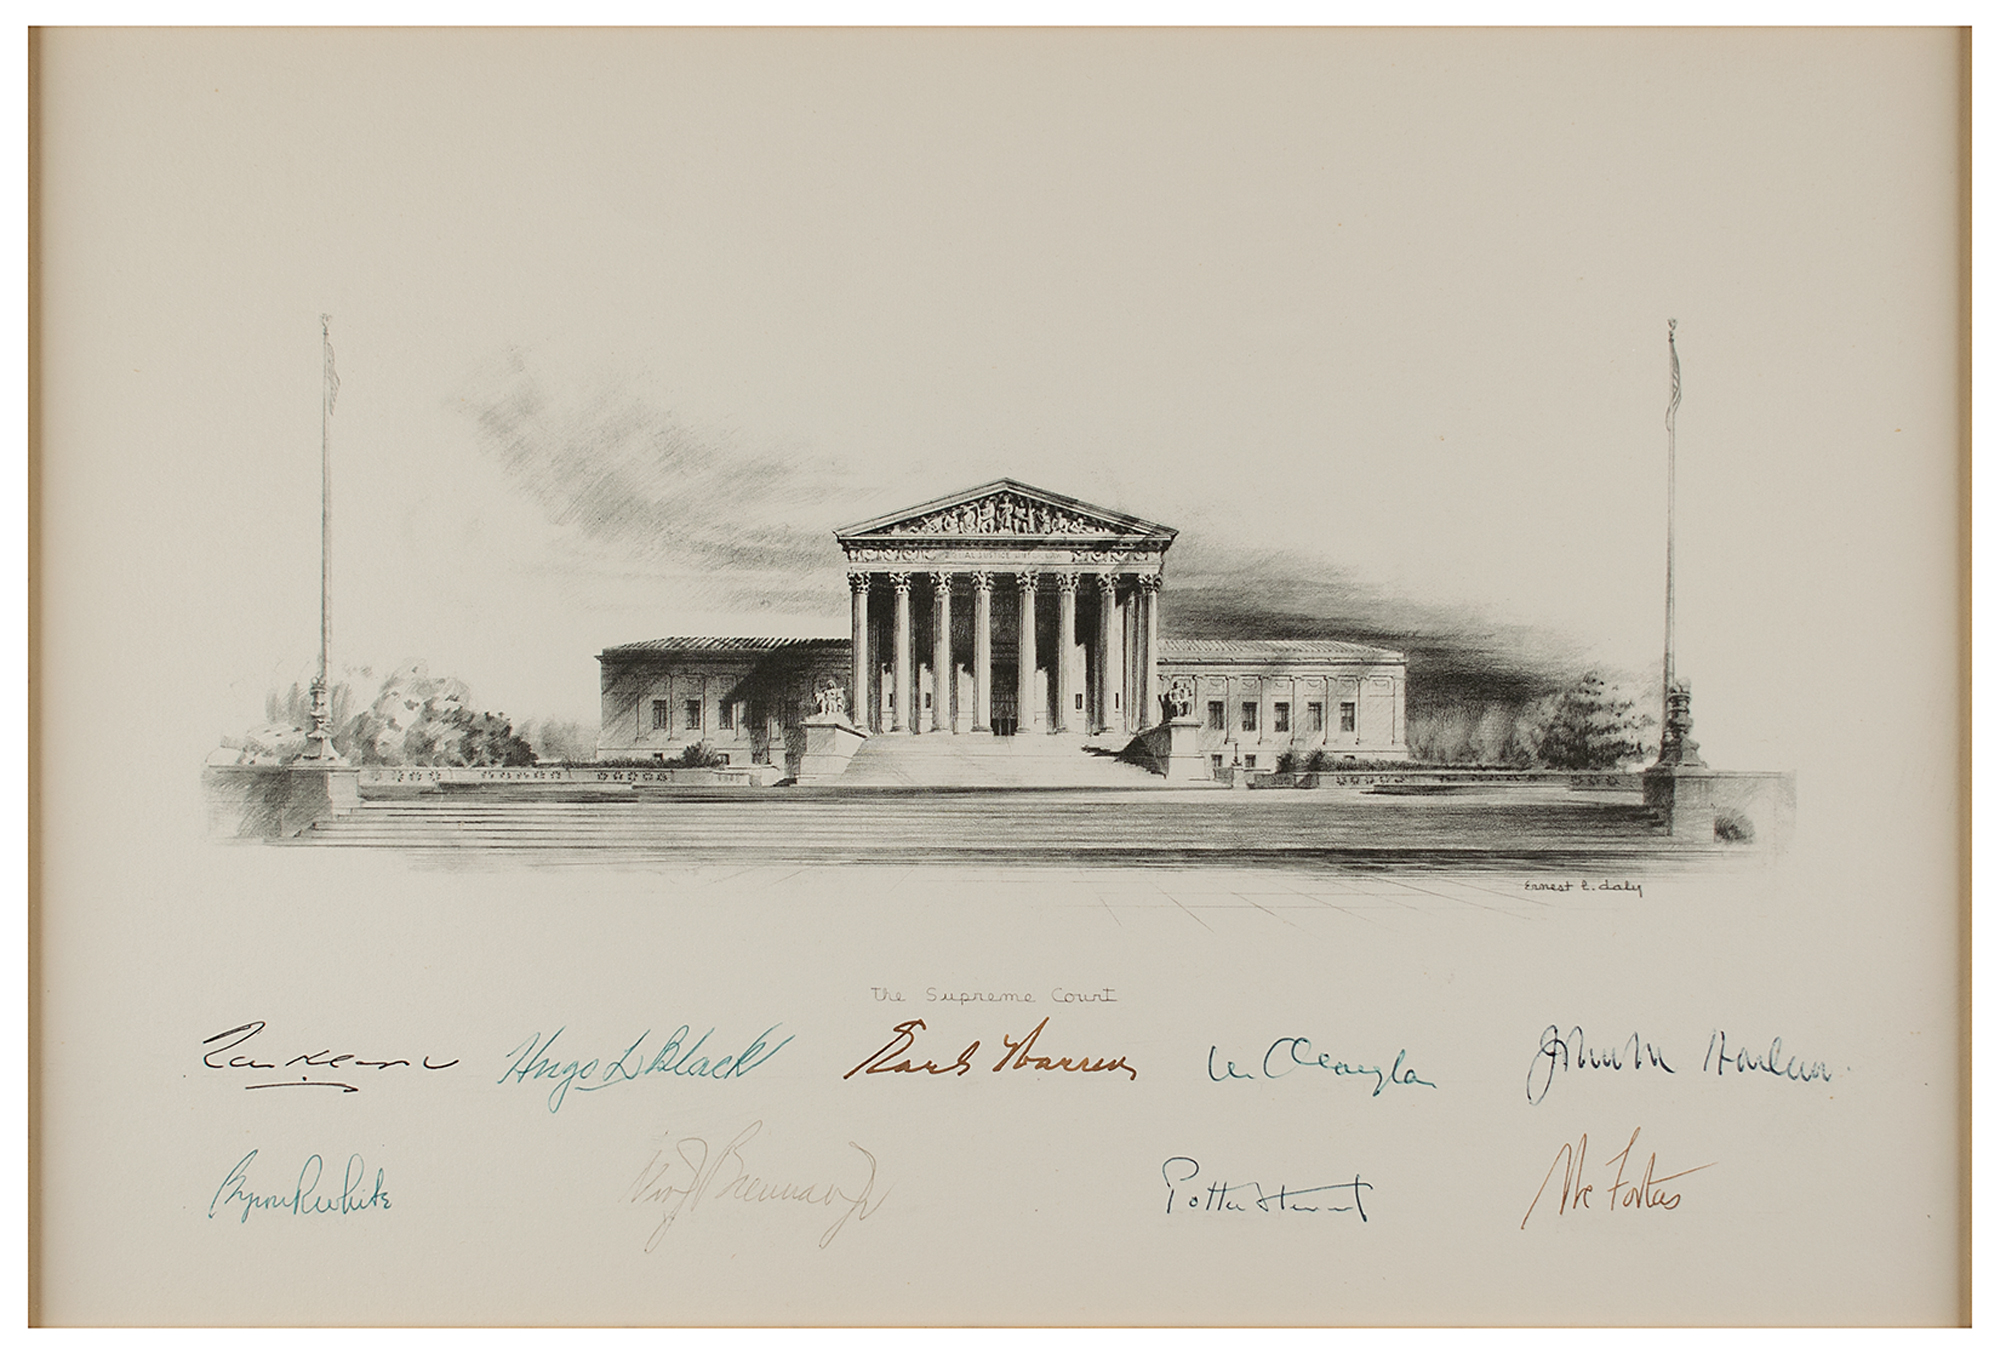 EQUAL JUSTICE UNDER LAW
Ernest C. Daly
The Supreme Court
Tom C. Clark Hugo L Black Earl Warren Wm O Douglas John M Harlan
Byron R White Wm J Brennan Jr Potter Stewart Abe Fortas